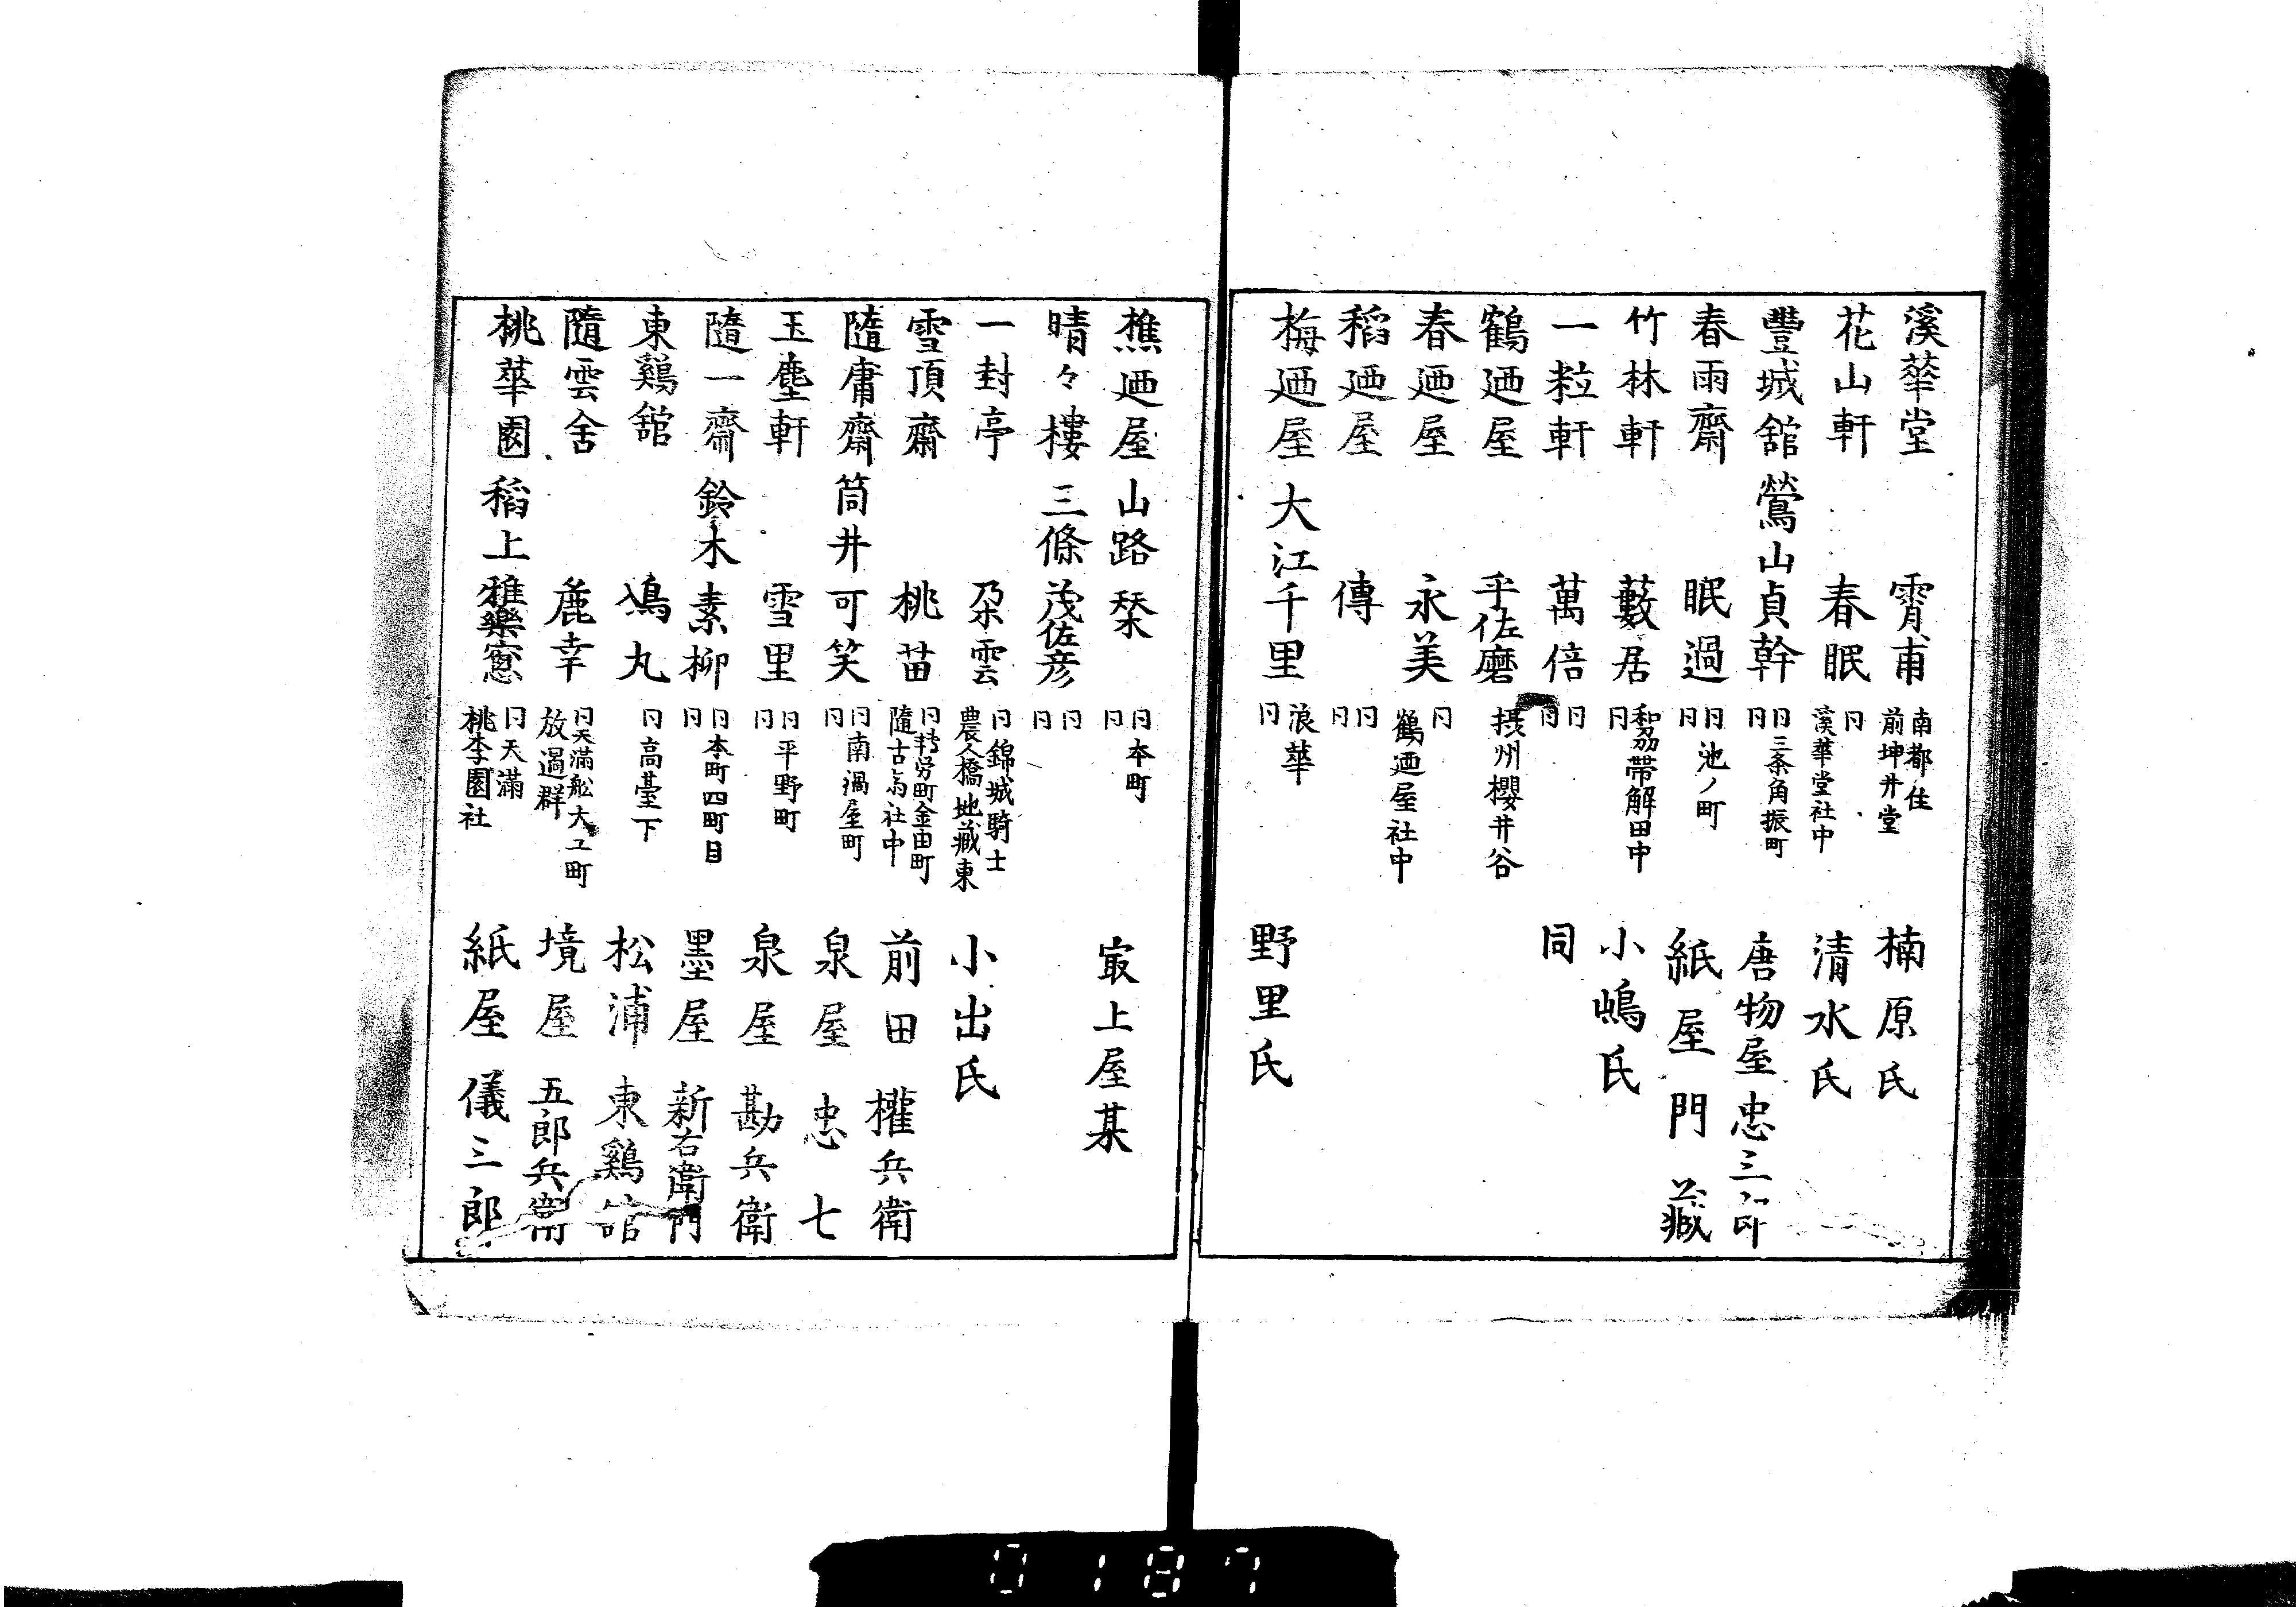 溪華堂 霄甫 南都住 前坤井堂 楠原氏
花山軒 春眠 冋 溪華堂社中 清水氏
豐城舘 鶯山貞幹 冋三条角振町 冋 唐物屋忠三
春雨齋 眠過 冋池ノ町 冋 紙屋門藏
竹林軒 藪居 帯解田中 冋 小嶋氏
一粒軒 萬倍 冋 冋 同
鶴廼屋 乎佐磨 摂州櫻井谷
春廼屋 永美 冋 鶴廼屋社中
稻廼屋 傳 冋 冋
梅廼屋 大江千里 浪華 冋 野里氏
樵廼屋 山路栞 冋本町 冋 冣上屋某
晴々樓 三條茂佐彦 冋 冋
一封亭 朶雲 冋錦城騎士 農人橋地藏東 小出氏
雪頂齋 桃苗 冋 町金田町 隨古 社中 前田權兵衛
隨庸齋 筒井可笑 冋南渦屋町 冋 泉屋忠七
玉塵軒 雪里 冋平野町 冋 泉屋勘兵衛
隨一齋 鈴木素柳 冋本町四町目 冋 墨屋新右衛門
東鷄舘 鳰丸 冋高臺下 松浦東鷄舘
隨雲舍 麁幸 冋天滿舩大工町 放過群 境屋五郎兵衛
桃華園 稻上雅樂窓 冋天滿 桃李園社 紙屋儀三郎
0187